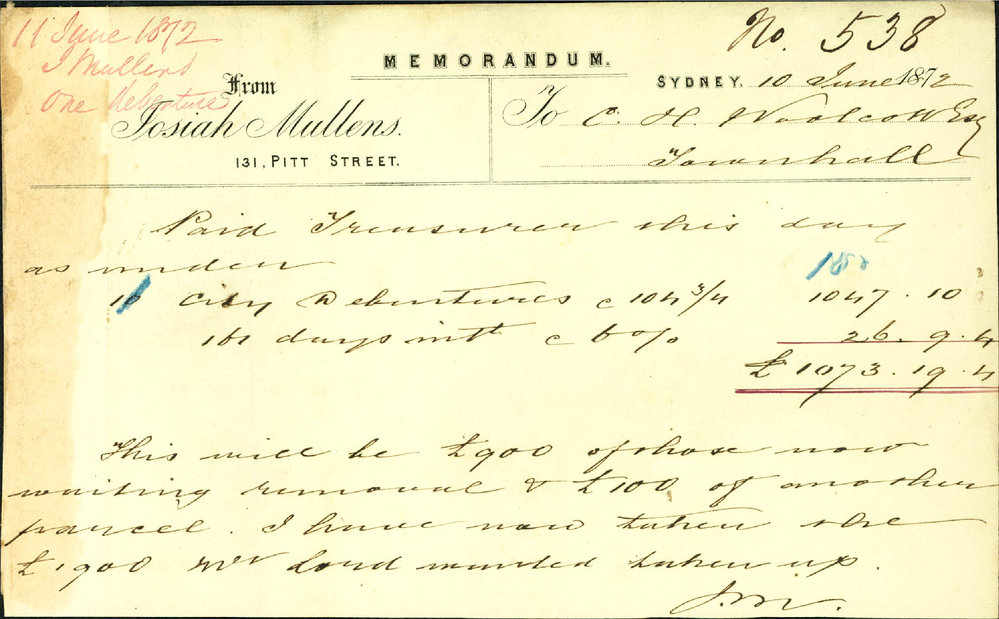 11 June 1872
J Mullens
One Debenture
No. 538
MEMORANDUM.
From
Josiah Mullens.
131, PITT STREET.
SYDNEY, 10 June 1872
To C. H. Woolcott Esq
Townhall
Paid Treasurer this day
as under
150
10 City Debentures c 104 3/4 1047 . 10
161 days intt c 6 o/o 26 . 9 . 4
£ 1073 . 19 . 4
This will be £900 of those now
waiting removal & £100 of another
parcel. I have now taken the
£1900 Mr Lord wanted taken up.
J.M.